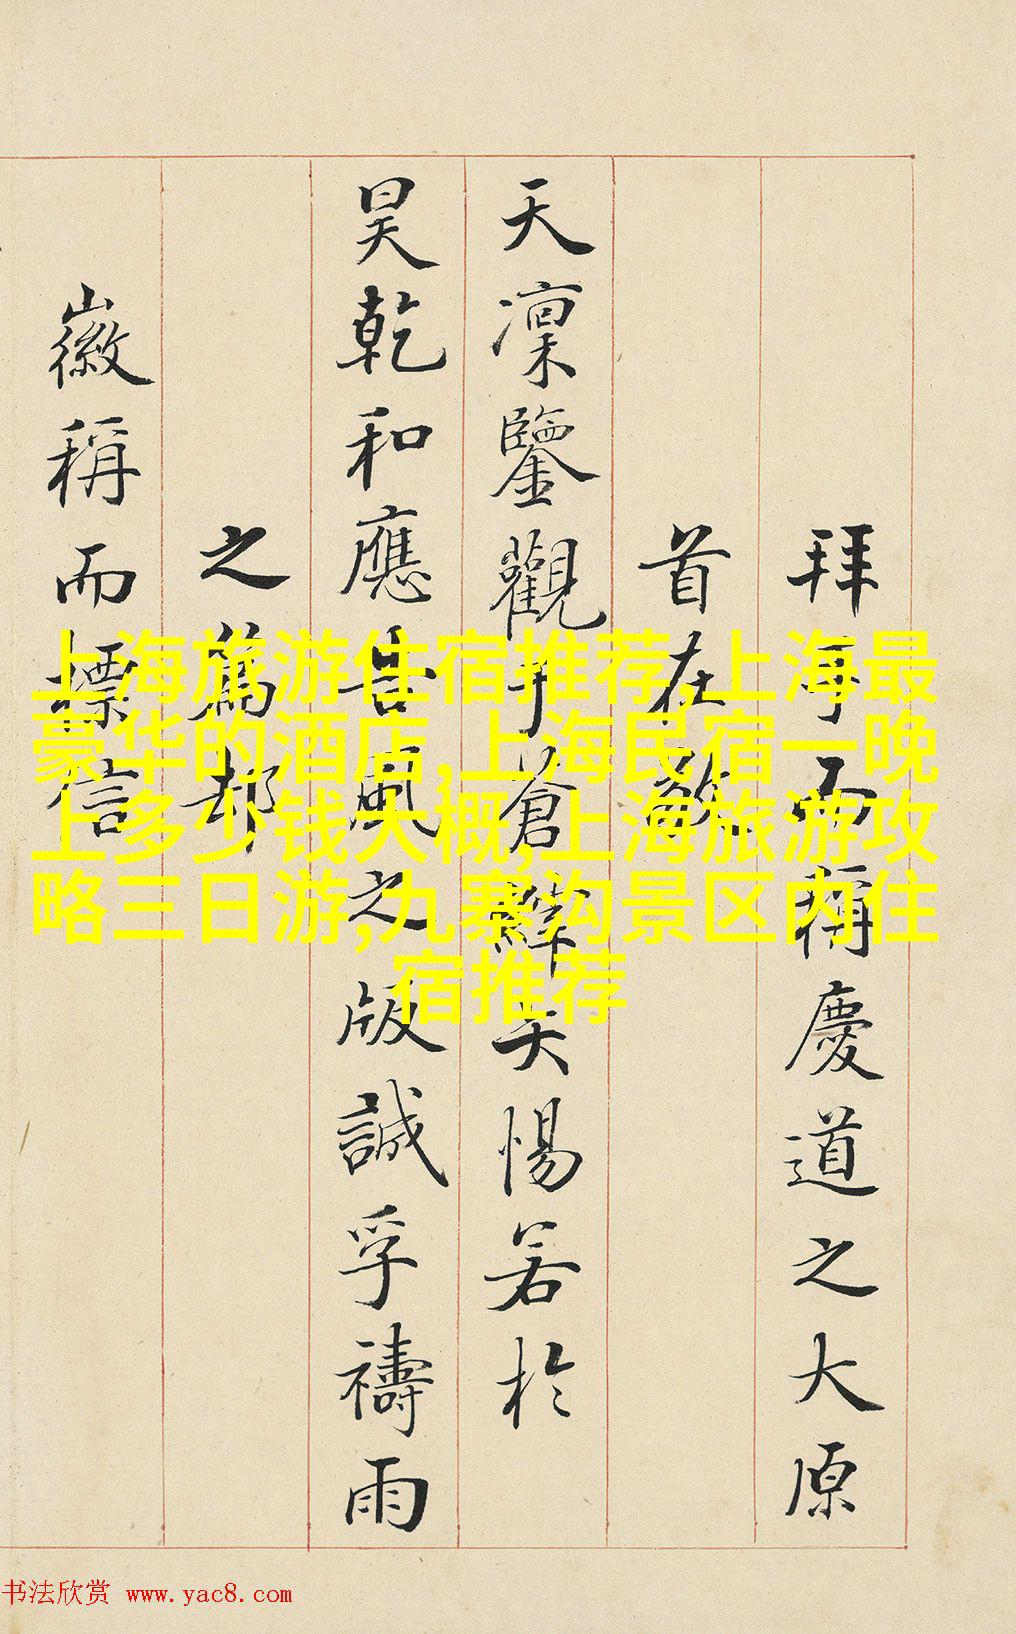 拜手而稱慶道之大原
首在敬
天凜鑒觀于蒼繹天惕若於
昊乾和應占風之版誠孚禱雨
之篤都
徽稱而標信
上海旅游住宿推荐,上海最
豪华的酒店,上海民宿一晚
上多少钱大概,上海旅游攻
略三日游,九寨沟景区内住
宿推荐
书法欣赏 www.yac8.com